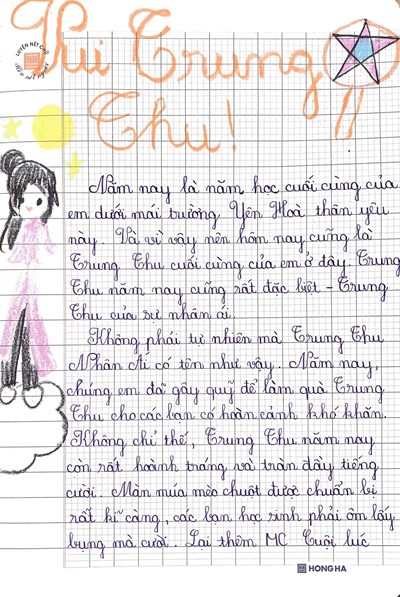 LUYỆN NÉT CHỮ
Vui Trung
Thu!
Năm nay là năm học cuối cùng của
em dưới mái trường Yên Hoà thân yêu
này. Và vì vậy nên hôm nay cũng là
Trung Thu cuối cùng của em ở đây. Trung
Thu năm nay cũng rất đặc biệt - Trung
Thu của sự nhân ái.
Không phải tự nhiên mà Trung Thu
Nhân Ái có tên như vậy. Năm nay,
chúng em đã gây quỹ để làm quà Trung
Thu cho các bạn có hoàn cảnh khó khăn.
Không chỉ thế, Trung Thu năm nay
còn rất hoành tráng và tràn đầy tiếng
cười. Màn múa mèo chuột được chuẩn bị
rất kĩ càng, các bạn học sinh phải ôm lấy
bụng mà cười. Lại thêm MC Cuội lúc
HONG HA